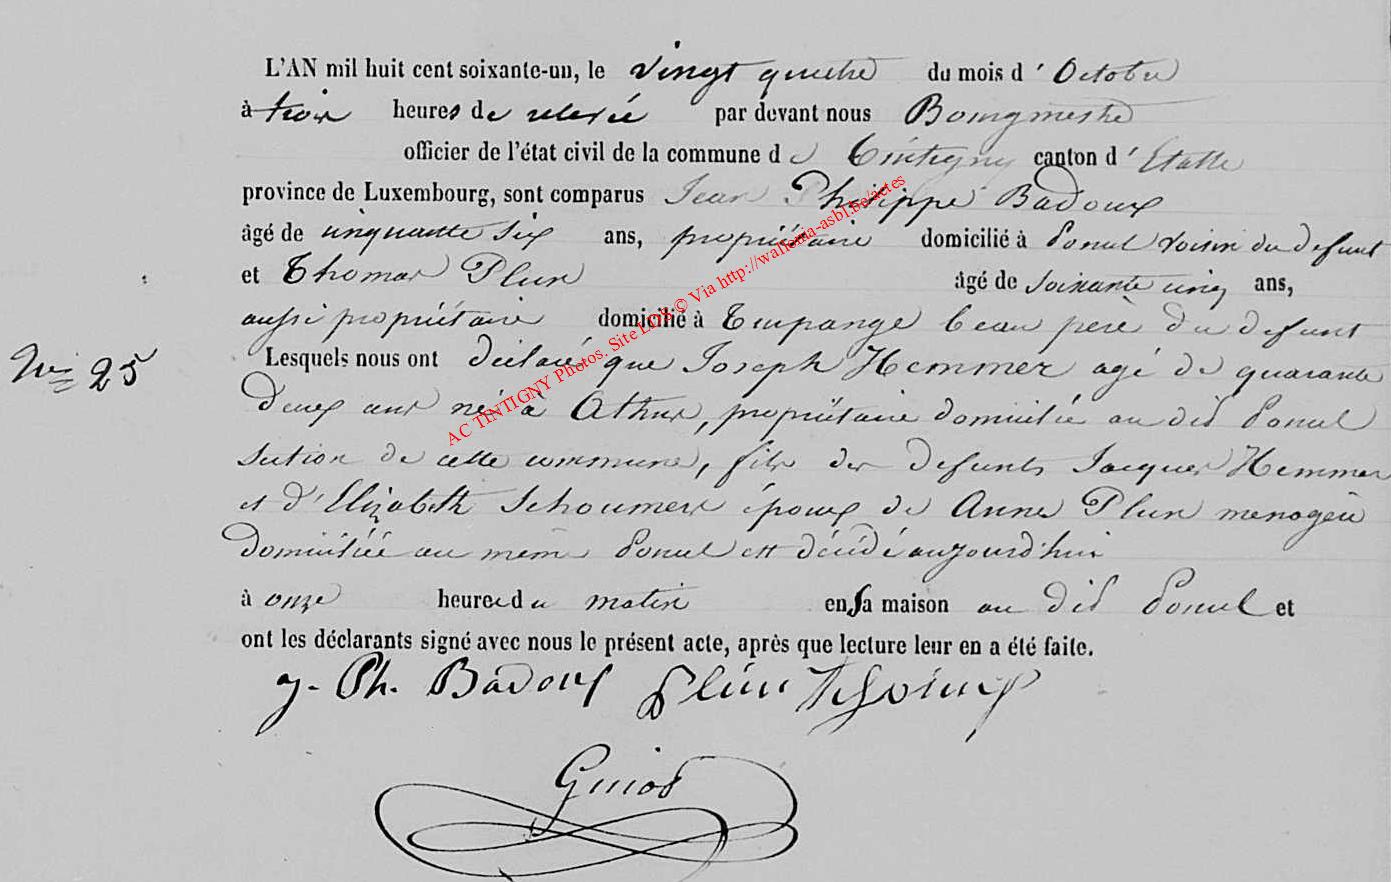 L'AN mil huit cent soixante-un, le vingt quatre du mois d' Octobre
à trois heures de relevée par devant nous Bourgmestre
officier de l'état civil de la commune de Tintigny canton d' Etalle
province de Luxembourg, sont comparus Jean Philippe Badoux
âgé de cinquante six ans, propriétaire domicilié à Ponul voisin du defunt
et Thomas Plun âgé de soixante cinq ans,
aussi propriétaire domicilié à beau pere du defunt
N° 25
Lesquels nous ont déclaré que Joseph Hemmer agé de quarante
deux ans né à Athus, propriétaire domicilié au dit Ponul
section de cette commune, fils des defunts Jacques Hemmer
et d'Elizabeth Schoumer époux de Anne Plun menagère
domiciliée au même Ponul est décédé aujourd'hui
à onze heures du matin en sa maison au dit Ponul et
ont les déclarants signé avec nous le présent acte, après que lecture leur en a été faite.
J. Ph. Badoux
AC TINTIGNY Photos. Site LDS © Via http://wallonia-asbl.be/actes